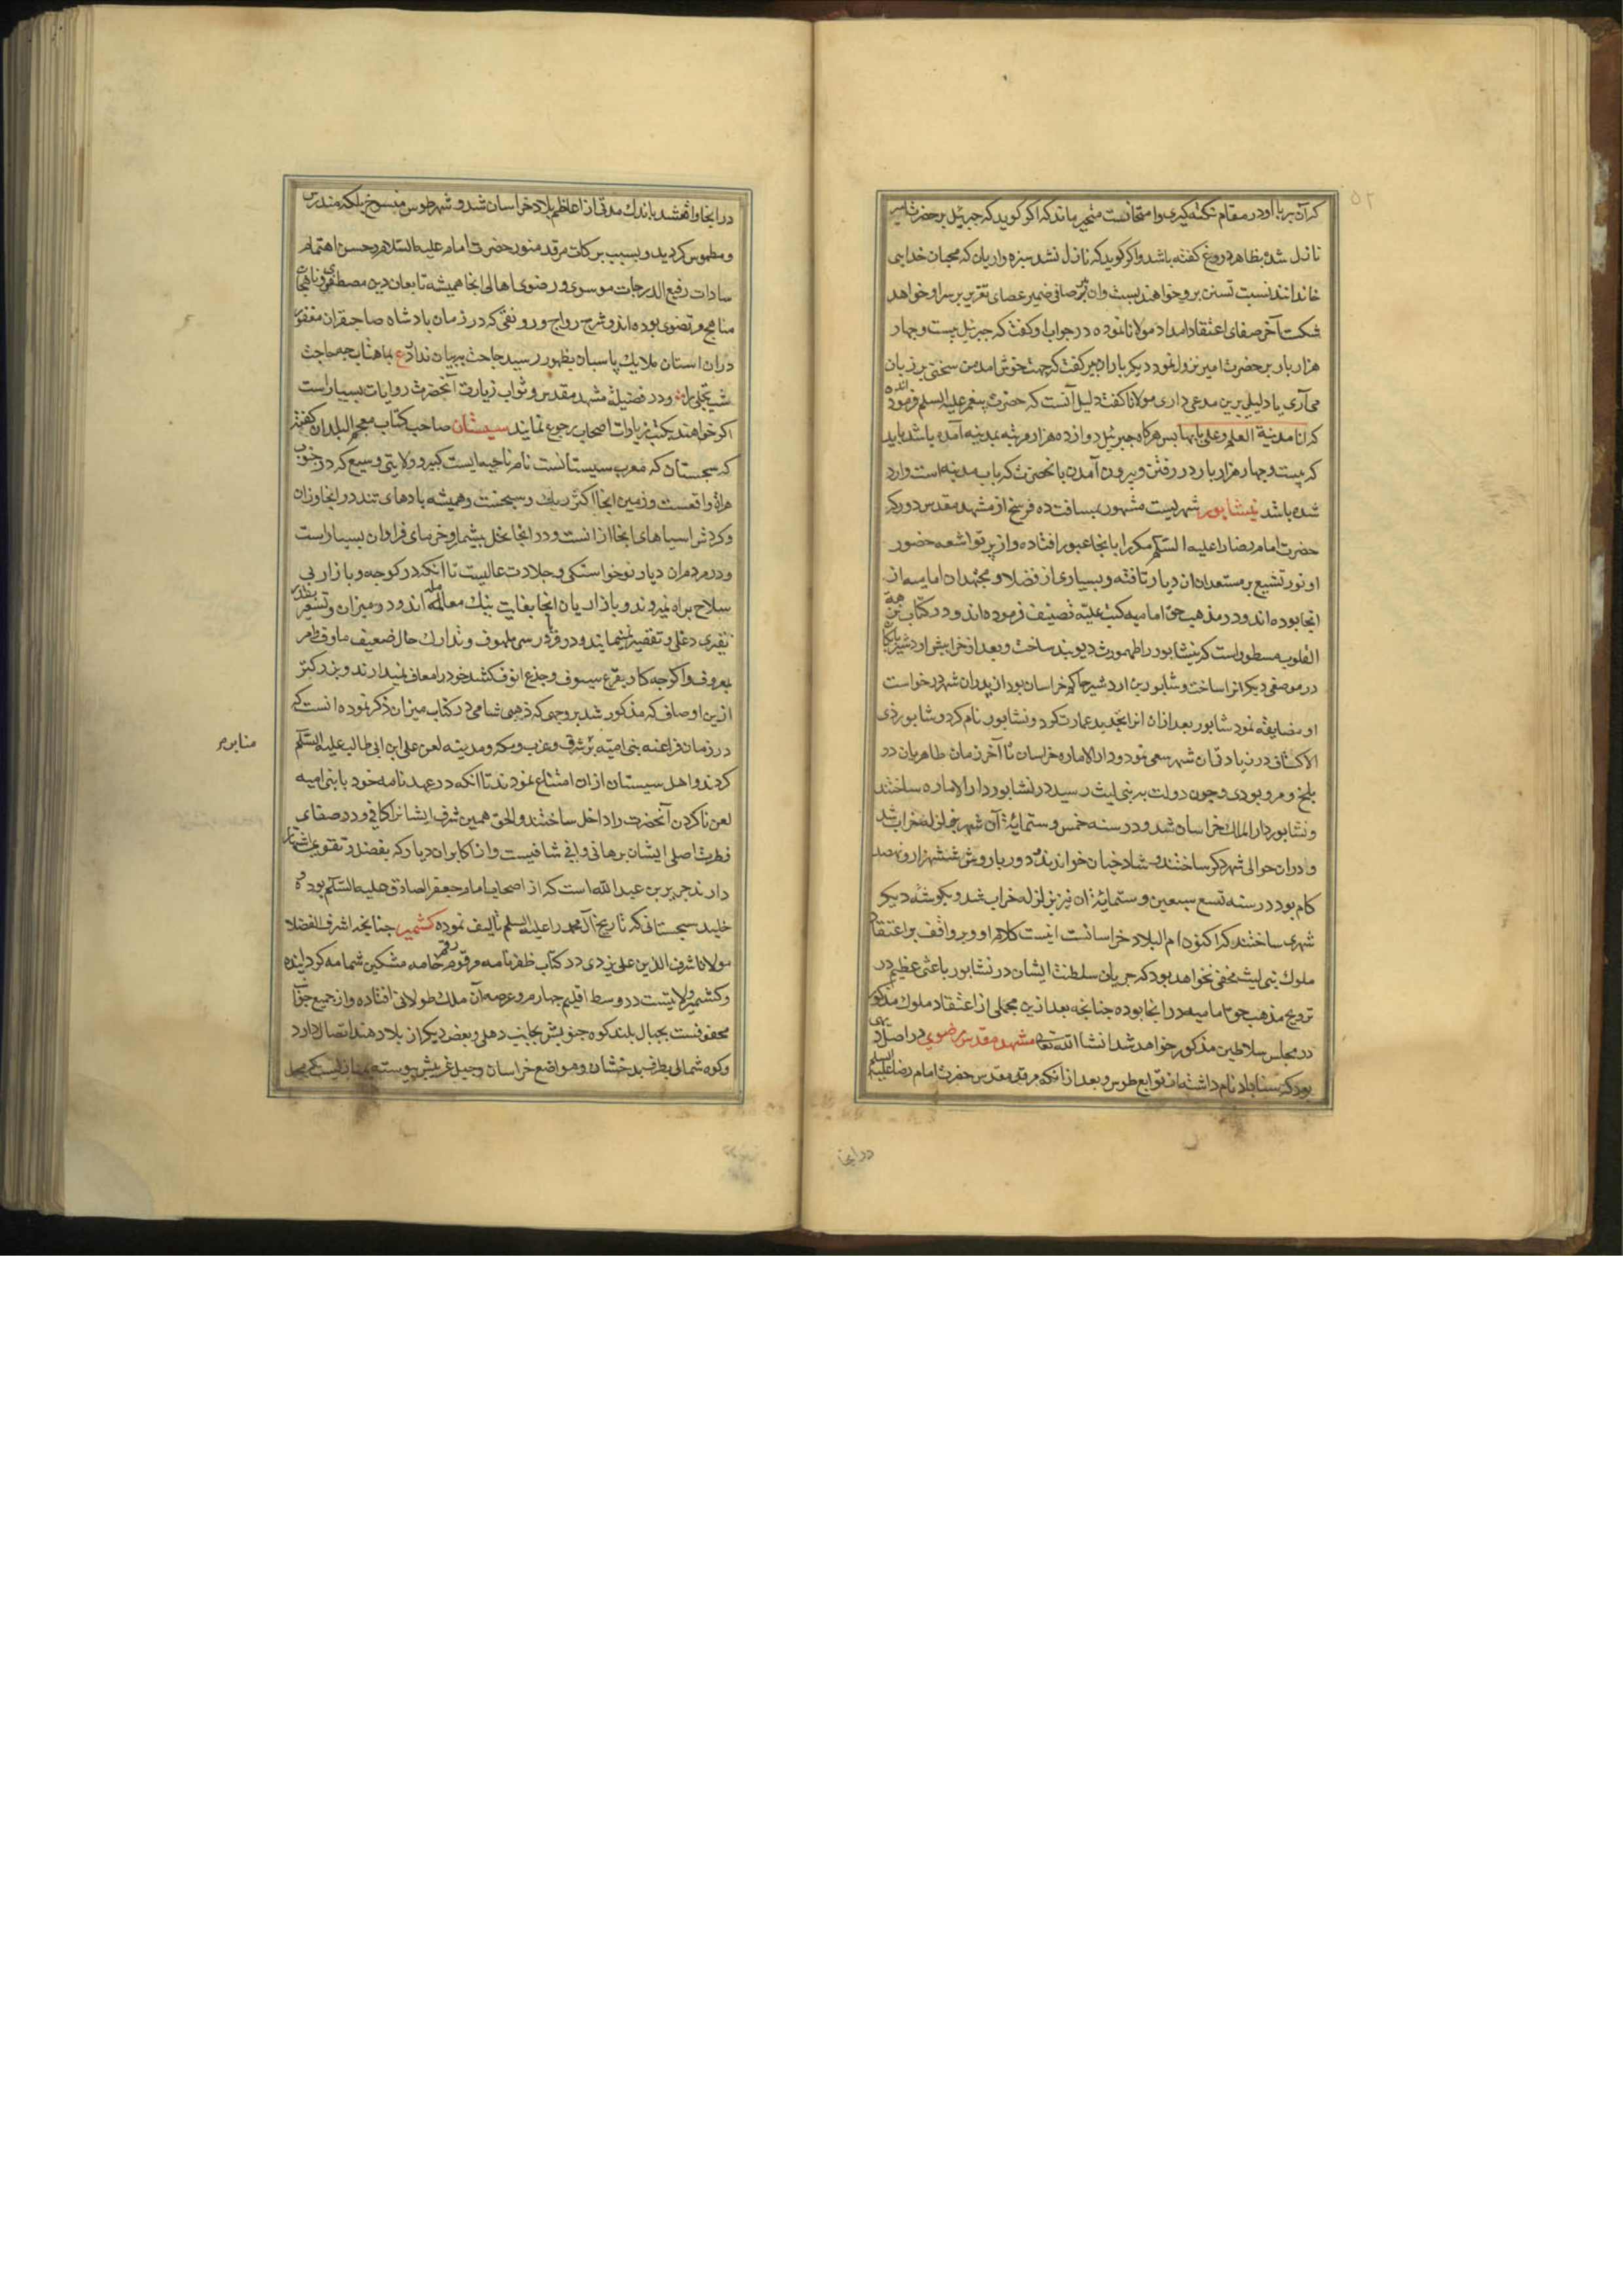 ۵۲
که آن پیر با او در مقام نکته گیری و امتحانست متحیر ماند که اگر گوید که جبرئیل بر حضرت امیر
نازل شده بظاهر دروغ گفته باشد و اگر گوید که نازل نشد سبزه واریان که محبان خدایی
خاندانند نسبت تسنن برو خواهند بست وان پیر صافی ضمیر عصای تقریر بر سر او خواهد
شکست آخر صفای اعتقاد امداد مولانا نموده در جواب او کفت که جبرئیل بیست و چهار
هزار بار بر حضرت امیر نزول نمود دیکر بار ان پیر کفت که جهت خوش امد من سخنی بر زبان
می آری یا دلیلی برین مدعی داری مولانا کفت دلیل آنست که حضرت پیغمبر علیه السلم فرموده اند
که انا مدینة العلم و علی بابها پس هرکاه جبرئیل دوازده هزار مرتبه بمدینه آمده باشد باید
که بیست و چهار هزار بار در رفتن و بیرون آمدن بانحضرت که باب مدینه است وارد
شده باشد نیشابور شهریست مشهور بمسافت ده فرسخ از مشهد مقدس دور که
حضرت امام رضا را علیه السلم مکررا بانجا عبور افتاده و از پرتو اشعه حضور
او نور تشیع بر مستعدان ان دیار تافته و بسیاری از فضلا و مجتهدان امامیه از
انجا بوده اند و در مذهب حق امامیه کتب علیه تصنیف فرموده اند و در کتاب نزهة
القلوب مسطور است که نیشابور را طهمورث دیوبند ساخت و بعد از خرابیش اردشیر بابکان
در موضعی دیکر انرا ساخت و شابور بن اردشیر حاکم خراسان بود از پدر ان شهر در خواست
او مضایقه نمود شابور بعد از ان انرا تجدید عمارت کرد و نشابور نام کرد و شابور ذی
الاکتاف در زیادتی ان شهر سعی نمود و دار الاماره خراسان تا آخر زمان طاهریان در
بلخ و مرو بودی و چون دولت به بنی لیث رسید در نشابور دار الاماره ساختند
و نشابور دار الملک خراسان شد و در سنه خمس و ستمایة آن شهر بزلزله خراب شد
و در ان حوالی شهر دکر ساختند و شادخیان خواندند دور باروش ششهزار و نهصد
کام بود در سنه تسع سبعین و ستمایة ان نیز بزلزله خراب شد و بکوشه دیکر
شهری ساختند که اکنون ام البلاد خراسانست اینست کلام او و بر واقف بر اعتقاد
ملوک بنی لیث مخفی نخواهد بود که جریان سلطنت ایشان در نشابور باعثی عظیم در
ترویج مذهب حق امامیه در انجا بوده چنانچه بعد ازین مجملی از اعتقاد ملوک مذکور
در مجلس سلاطین مذکور خواهد شد انشا الله تعالی مشهد مقدس رضوی در اصل دیهی
بود که سناباد نام داشته از توابع طوس و بعد از انکه مرقد مقدس حضرت امام رضا علیه السلم
در انجا
در انجا واقع شد باندک مدتی از اعاظم بلاد خراسان شد و شهر طوس منسوخ بلکه مندرس
و مطموس کردید و بسبب برکات مرقد منور حضرت امام علیه السلام و حسن اهتمام
سادات رفیع الدرجات موسوی و رضوی اهالی انجا همیشه تابعان دین مصطفوی و ناهجان
مناهج مرتضوی بوده اند و شرح رواج و رونقی که در زمان پادشاه صاحبقران مغفور
در ان استان ملایک پاسبان بظهور رسید حاجت ببیان ندارد ع بماهتاب چه حاجت
شب تجلی را و در فضیلة مشهد مقدس و ثواب زیارت آنحضرت روایات بسیار است
اکر خواهند بکتب زیارات اصحاب رجوع نمایند سیستان صاحب کتاب معجم البلدان کفته
که سجستان که معرب سیستانست نام ناحیه ایست کبیر و ولایتی وسیع که در جنوب
هراة واقعست و زمین انجا اکثر ریک و سبخست و همیشه بادهای تند در انجا وزان
و کردش اسیاهای انجا از انست و در انجا نخل بیشمار و خرمای فراوان بسیار است
و در مردم ان دیار نوخواستکی و جلادت عالیست تا انکه در کوچه و بازار بی
سلاح براه نمیروند و بازاریان انجا بغایت نیک معامله اند و در میزان و تسعیر بقدر
نقیری دغلی و تقصیر نمی نمایند و در فریاد رسی ملهوف و تدارک حال ضعیف و اوقطامر
بمعروف و اکر چه کار بقرع سیوف و جذع انوف کشد خود را معاف نمیدارند و بزرکتر
ازین اوصاف که مذکور شد بر وجهی که ذهبی شامی در کتاب میزان ذکر نموده انست که
در زمان فراعنه بنی امیه بر شرق و غرب و مکه و مدینه لعن علی ابن ابی طالب علیه السلم
منابر م
کردند و اهل سیستان از ان امتناع نمودند تا انکه در عهد نامه خود با بنی امیه
لعن ناکردن آنحضرت را داخل ساختند و الحق همین شرف ایشانرا کافی و در صفای
فطرت اصلی ایشان برهانی وافی شافیست و از اکابر ان دیار که بفضل و تقوی اشتهار
دارند جریر بن عبد الله است که از اصحاب امام جعفر الصادق علیه السلم بوده و
خلید سجستانی که تاریخ آل محمد را علیه السلم تالیف نموده کشمیر چنانچه اشرف الفضلا
مولانا شرف الدین علی یزدی در کتاب ظفرنامه مرقوم رقم خامه مشکین شمامه کردانیده
و کشمیر ولایتیست در وسط اقلیم چهارم و عرصه آن ملک طولانی افتاده و از جمیع جوانب
محفوفست بجبال بلند کوه جنوبیش بجانب دهلی و بعض دیکر از بلاد هند اتصال دارد
و کوه شمالی بطرف بدخشان و مواضع خراسان و جبل غربیش پیوسته